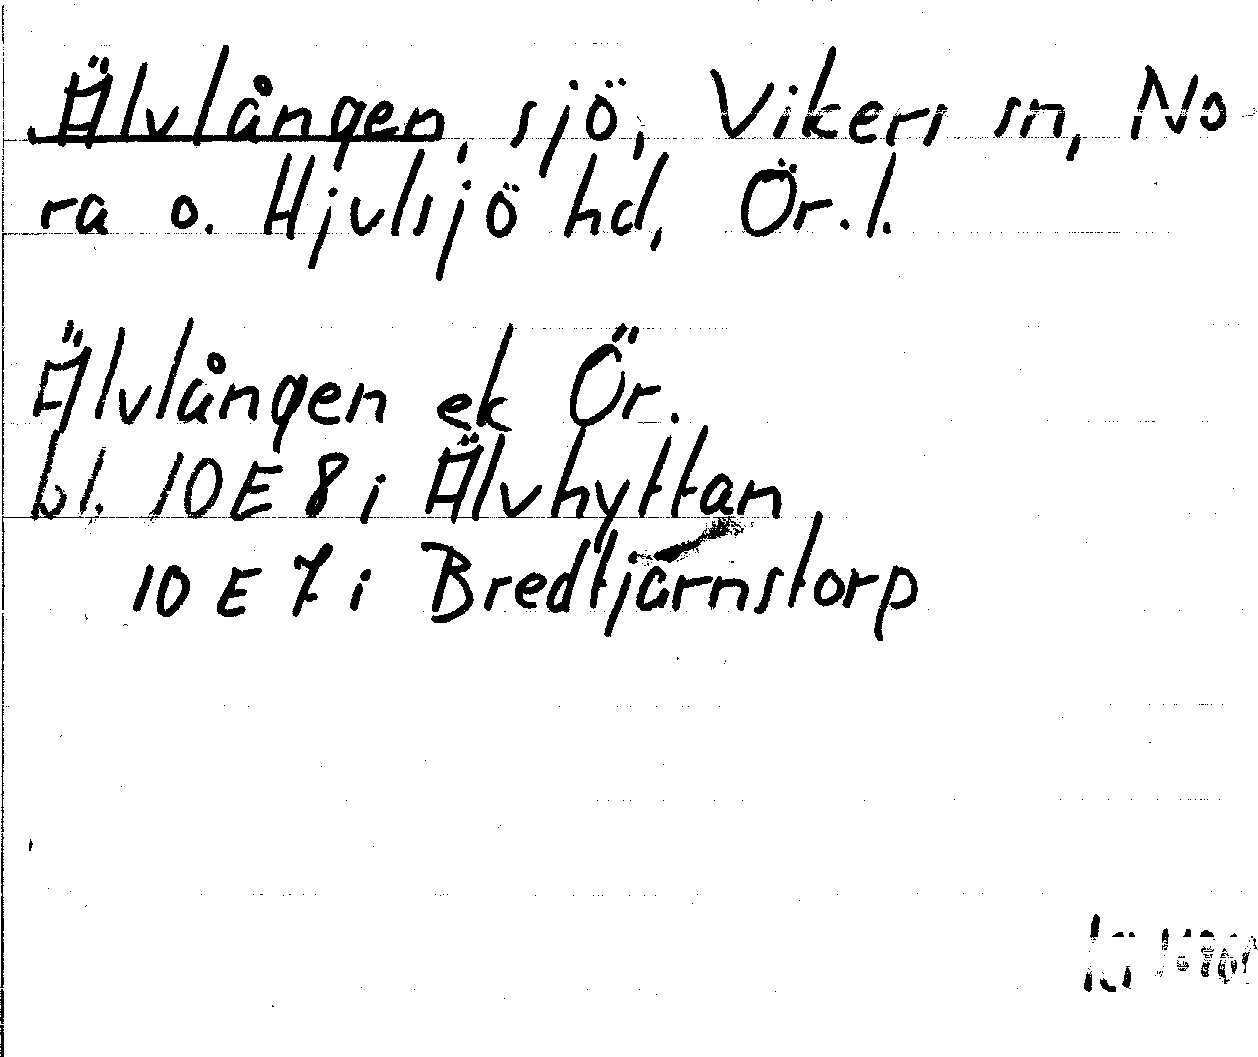 Älvlången, sjö, Vikers sn, No
ra o. Hjulsjö hd, Ör. l.
Älvlången ek Ör.
bl. 10 E 8 i Älvhyttan
10 E 7 i Bredtjärnstorp